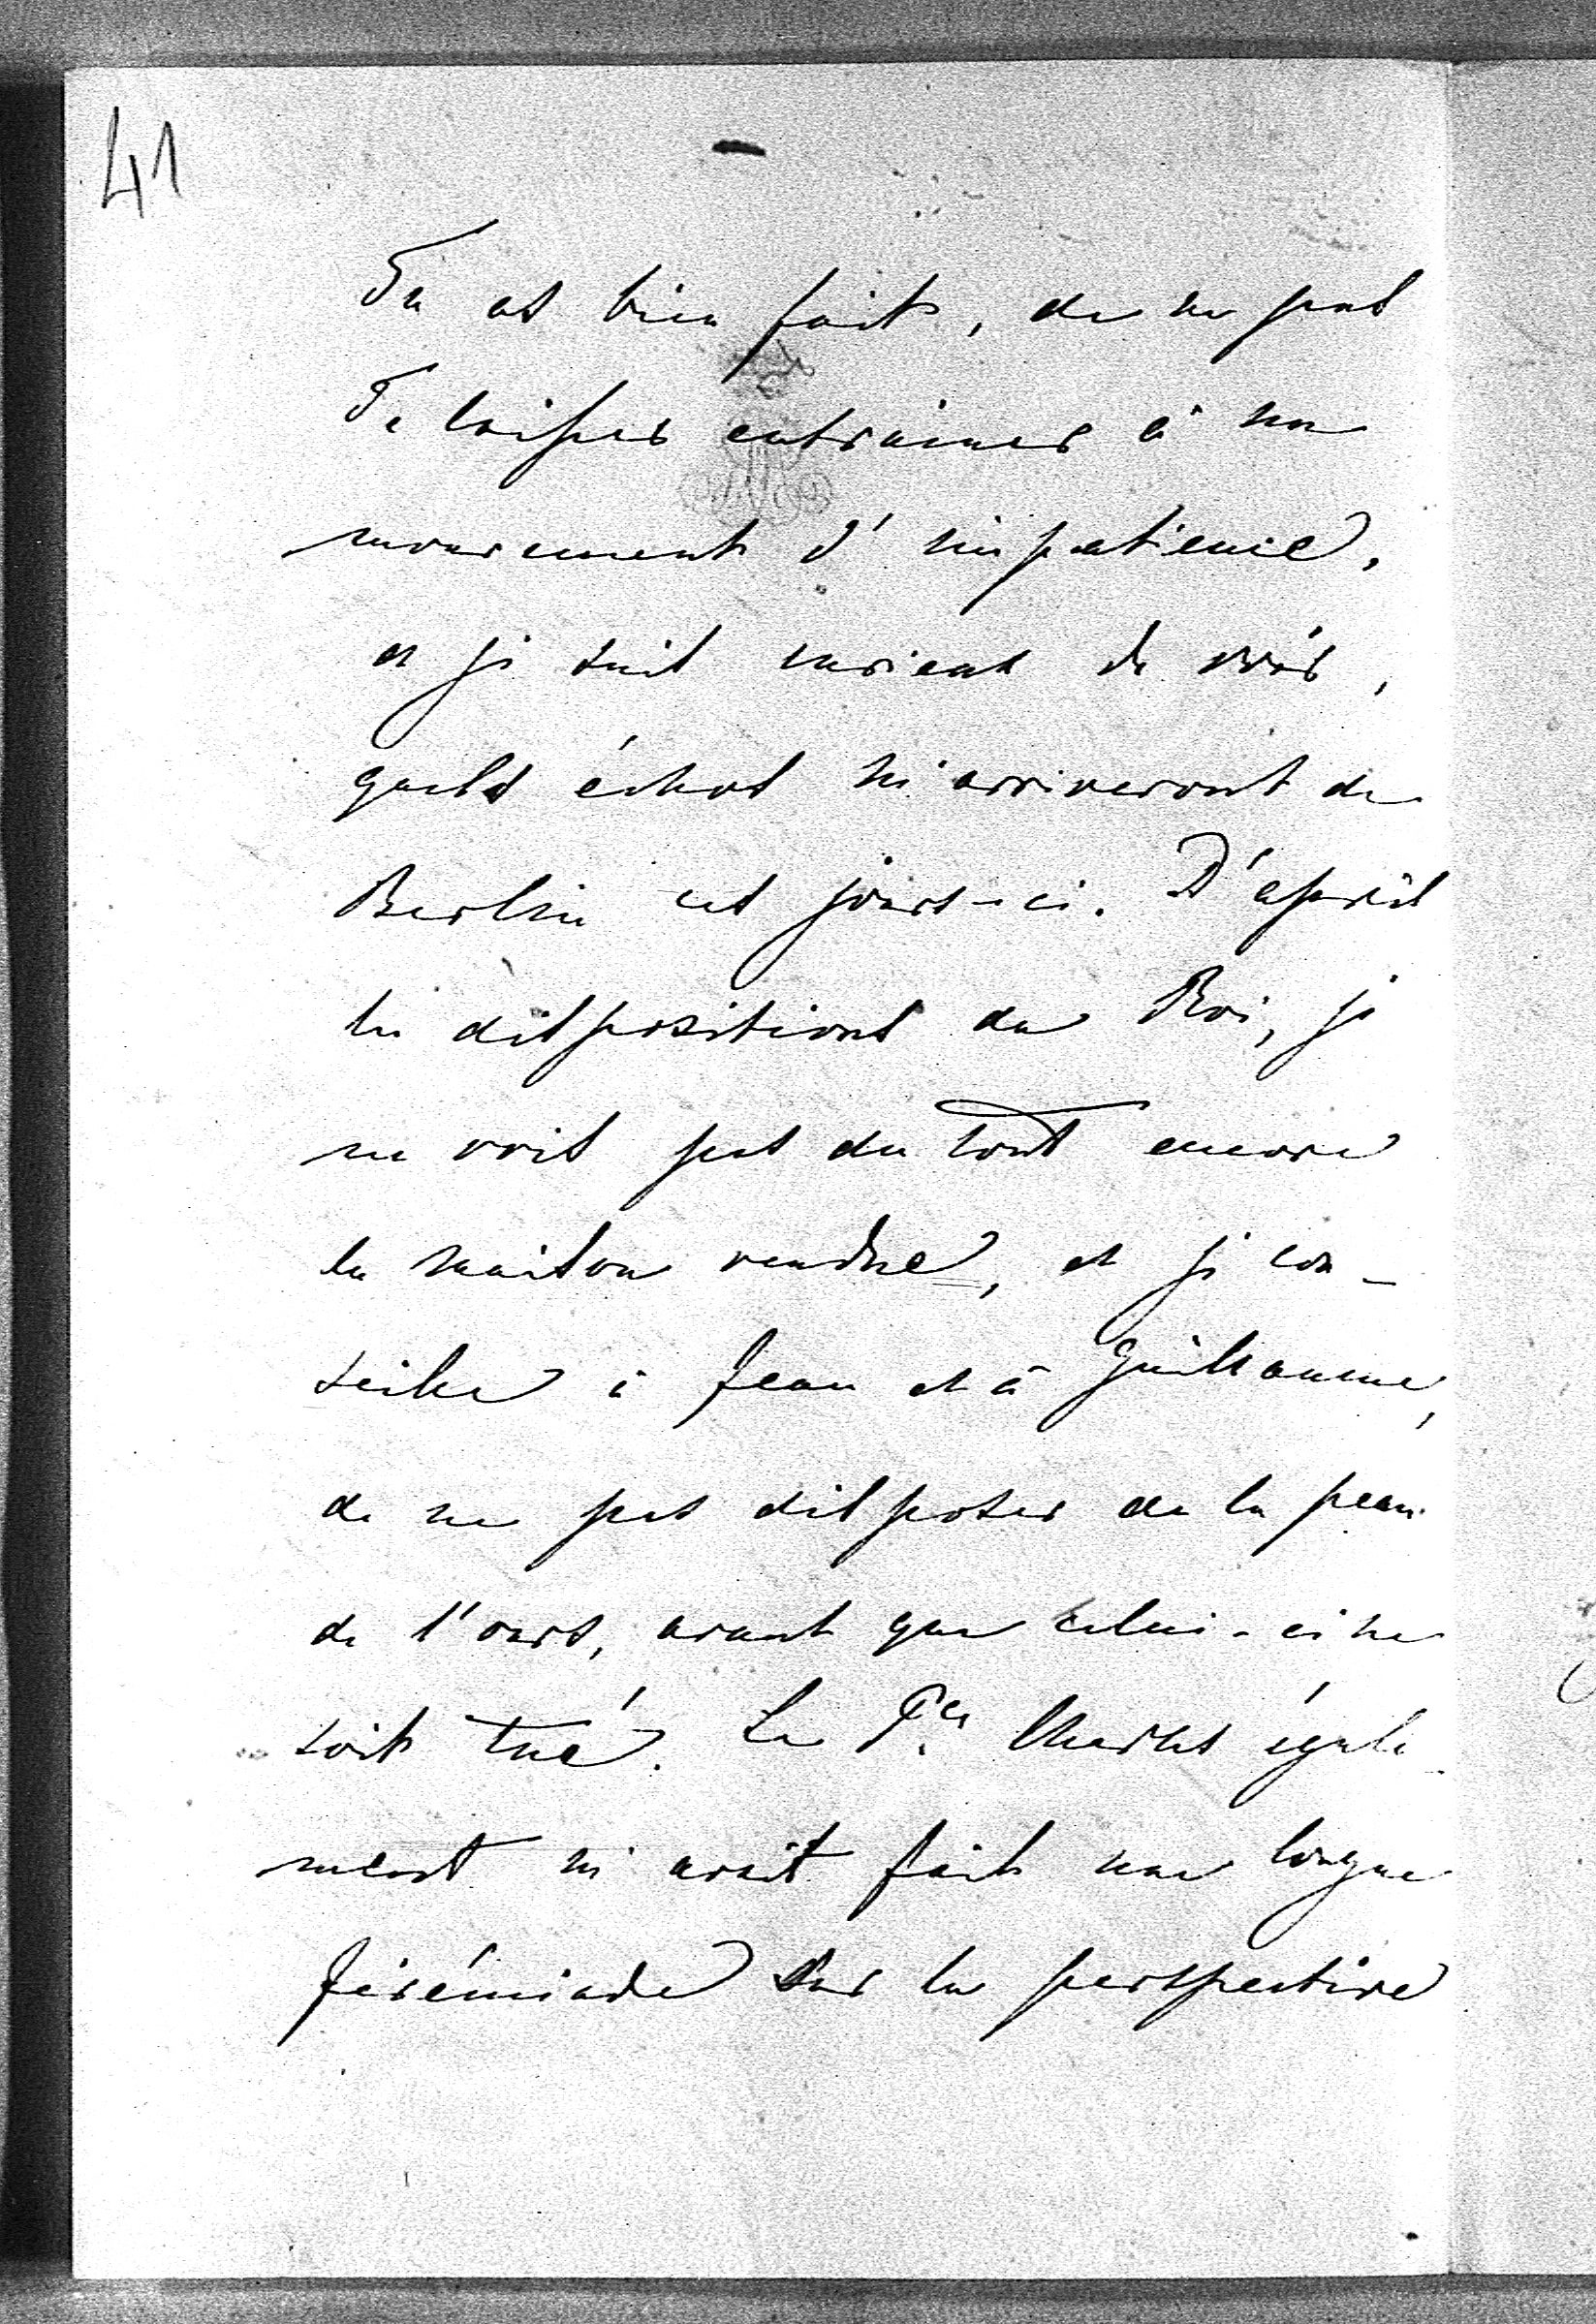 41
Tu as bien fait, de ne pas
Te laisser entrainer à un
mouvement d'impatience,
et je suis curieux de voir,
quels échos m'arriveront de
Berlin ces jours-ci. D'après
les dispositions du Roi, je
ne vois pas du tout encore
la maison vendue, et je con-
seille à Jean et à Guillaume,
de ne pas disposer de la peau
de l'ours, avant que celui-ci ne
soit tué. Le Pce Charles égale-
ment m'avait fait une longue
Jérémiade sur la perspective